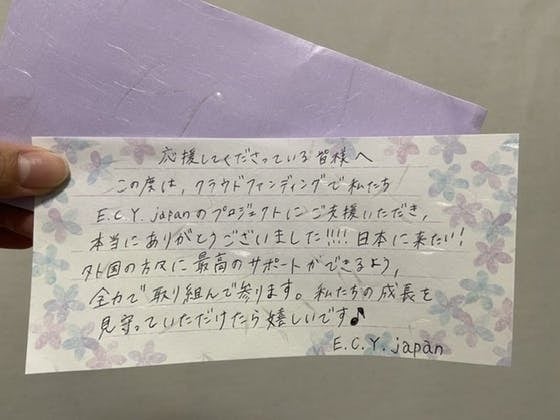 応援してくださっている皆様へ
この度は，クラウドファンディングで私たち
E.C.Y. japanのプロジェクトにご支援いただき，
本当にありがとうございました!!!! 日本に来たい！
外国の方々に最高のサポートができるよう，
全力で取り組んで参ります。私たちの成長を
見守っていただけたら嬉しいです♪
E.C.Y. japan